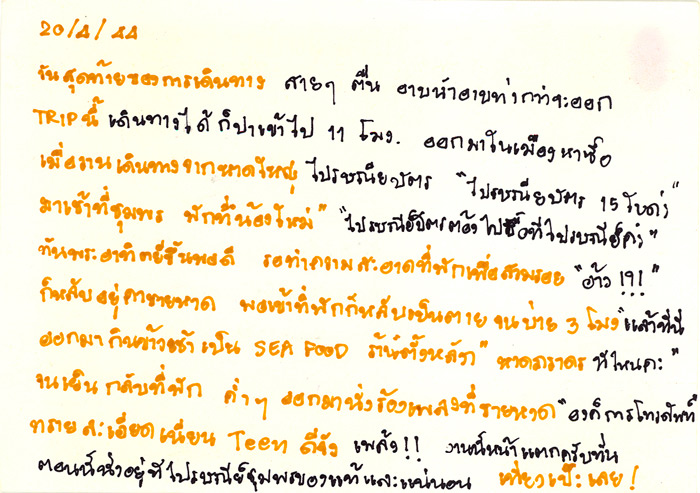 20/4/44
วันสุดท้ายของการเดินทาง สายๆ ตื่น อาบน้ำอาบท่ากว่าจะออก
TRIP นี้ เดินทางได้ ก็ปาเข้าไป 11 โมง. ออกมาในเมืองหาซื้อ
เมื่อวานเดินทางจากหาดใหญ่ ไปรษณียบัตร "ไปรษณียบัตร 15 ใบค่ะ
มาเช้าที่ชุมพร พักที่น้องใหม่" "ไปรษณีย์บัตรต้องไปซื้อที่ไปรษณีย์ค่ะ"
ทันพระอาทิตย์ขึ้นพอดี รอทำความสะอาดที่พักเพื่อสวมรอย "อ้าว !?!"
ก็หลับอยู่คาชายหาด พอเข้าที่พักก็หลับเป็นตาย จนบ่าย 3 โมง "แล้วที่นี่
ออกมากินข้าวเช้า เป็น SEA FOOD ร้านตั้งหลัก" หาดภราดร ที่ไหนคะ"
จนเย็น กลับที่พัก ค่ำๆ ออกมานั่งร้องเพลงที่ชายหาด "องค์การโทรศัพท์"
ทรายละเอียดเนียน Teen ดีจัง เพล้ง!! งานนี้หน้าแตกครับท่าน
ตอนนี้นั่งอยู่ที่ไปรษณีย์ชุมพรของแท้และแน่นอน เที่ยงเป๊ะเลย!